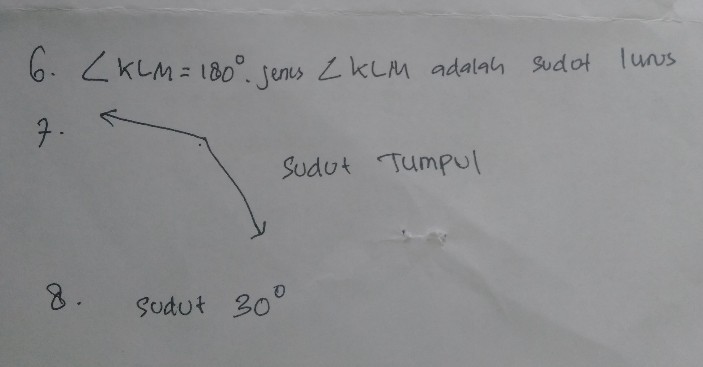 6. ∠KLM = 180°. jenis ∠KLM adalah sudut lurus
7.
Sudut Tumpul
8. Sudut 30°